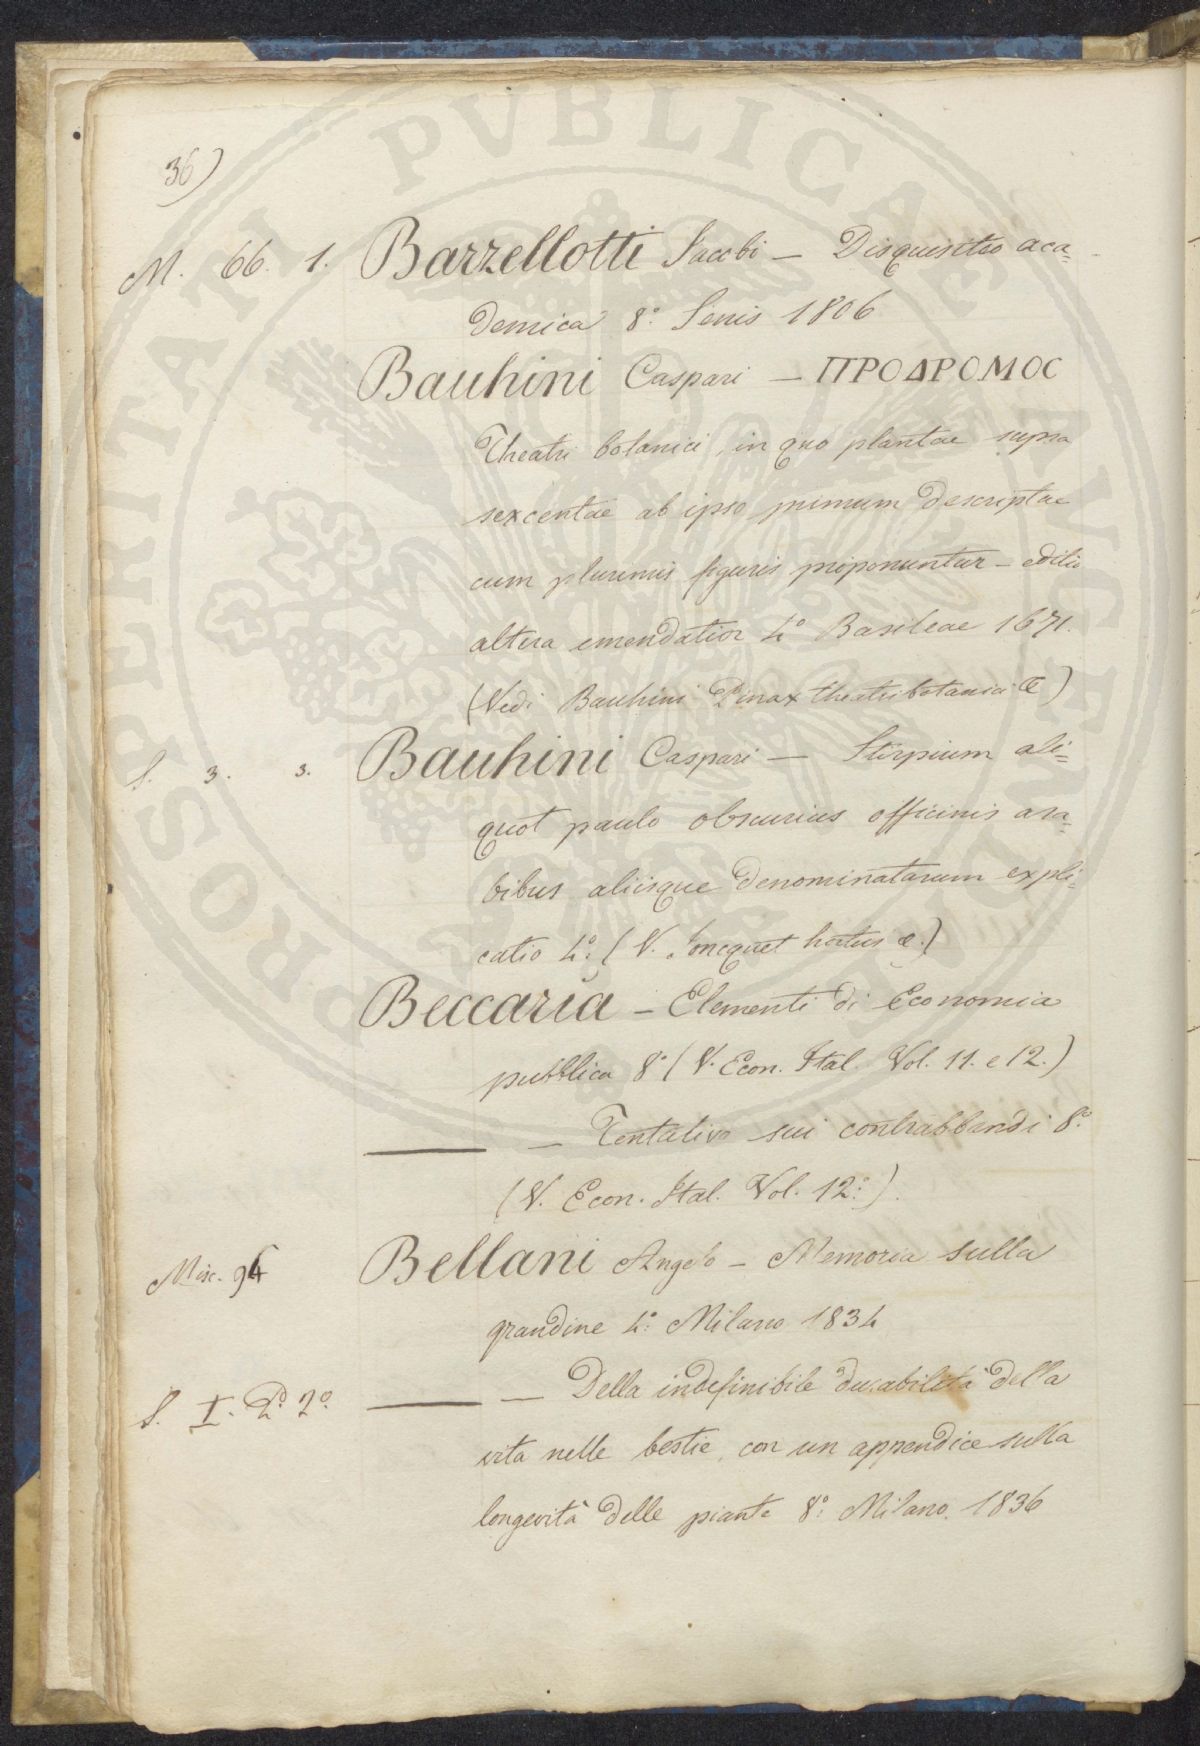 36)
M. 66. 1. Barzellotti Jacobi — Disquisitio aca=
demica 8.° Senis 1806
Bauhini Caspari — ΠΡΟΔΡΟΜΟC
Theatri botanici, in quo plantae supra
sexcentae ab ipso primum descriptae
cum plurimis figuris proponuntur – editio
altera emendatior 4.° Basileae 1671.
(Vedi Bauhini Pinax theatri botanici &)
S. 3. 3. Bauhini Caspari — Stirpium ali=
quot paulo obscurius officinis ara=
bibus aliisque denominatarum expli=
catio 4.° (V. Joncquet hortus &.)
Beccaria – Elementi di Economia
pubblica 8.° (V. Econ. Ital. Vol. 11. e 12.)
— — Tentativo sui contrabbandi 8.°
(V. Econ. Ital. Vol. 12.°).
Misc. 94 Bellani Angelo – Memoria sulla
grandine 4.° Milano 1834
S. I. P.° 2.° — — Della indefinibile durabilità della
vita nelle bestie, con un appendice sulla
longevità delle piante 8.° Milano. 1836
PROSPERITATI PVBLICAE AVGENDAE